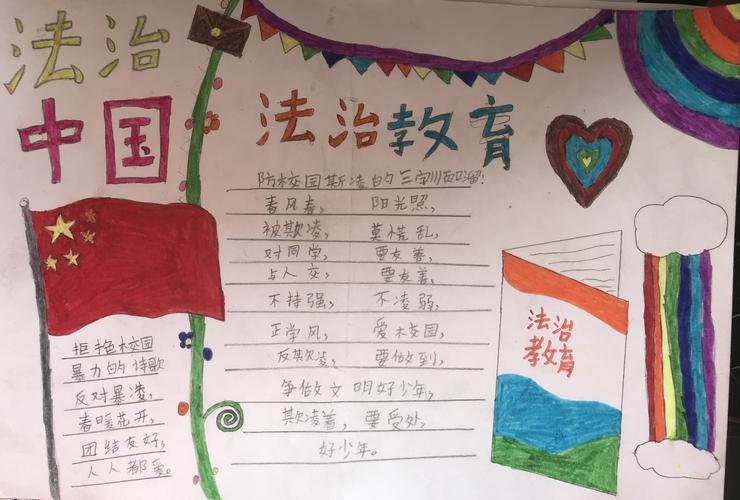 法治
中国
法治教育
防校园欺凌的三字顺口溜:
春风春, 阳光照,
被欺凌, 莫慌乱,
对同学, 要友善,
与人交, 要友善,
不持强, 不凌弱,
正学风, 爱校园,
反欺凌, 要做到,
争做文明好少年,
欺凌着, 要受处,
好少年。
拒绝校园
暴力的诗歌
反对暴凌,
春暖花开,
团结友好,
人人都爱。
法治
教育